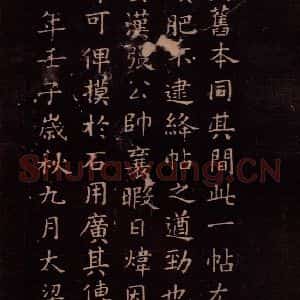 舊本同其間此一帖左
肥不逮絳帖之遒勁也
漢張公帥襄暇日煒因
可俾摸於石用廣其傳
年壬子歲秋九月太梁
Shufawang.CN